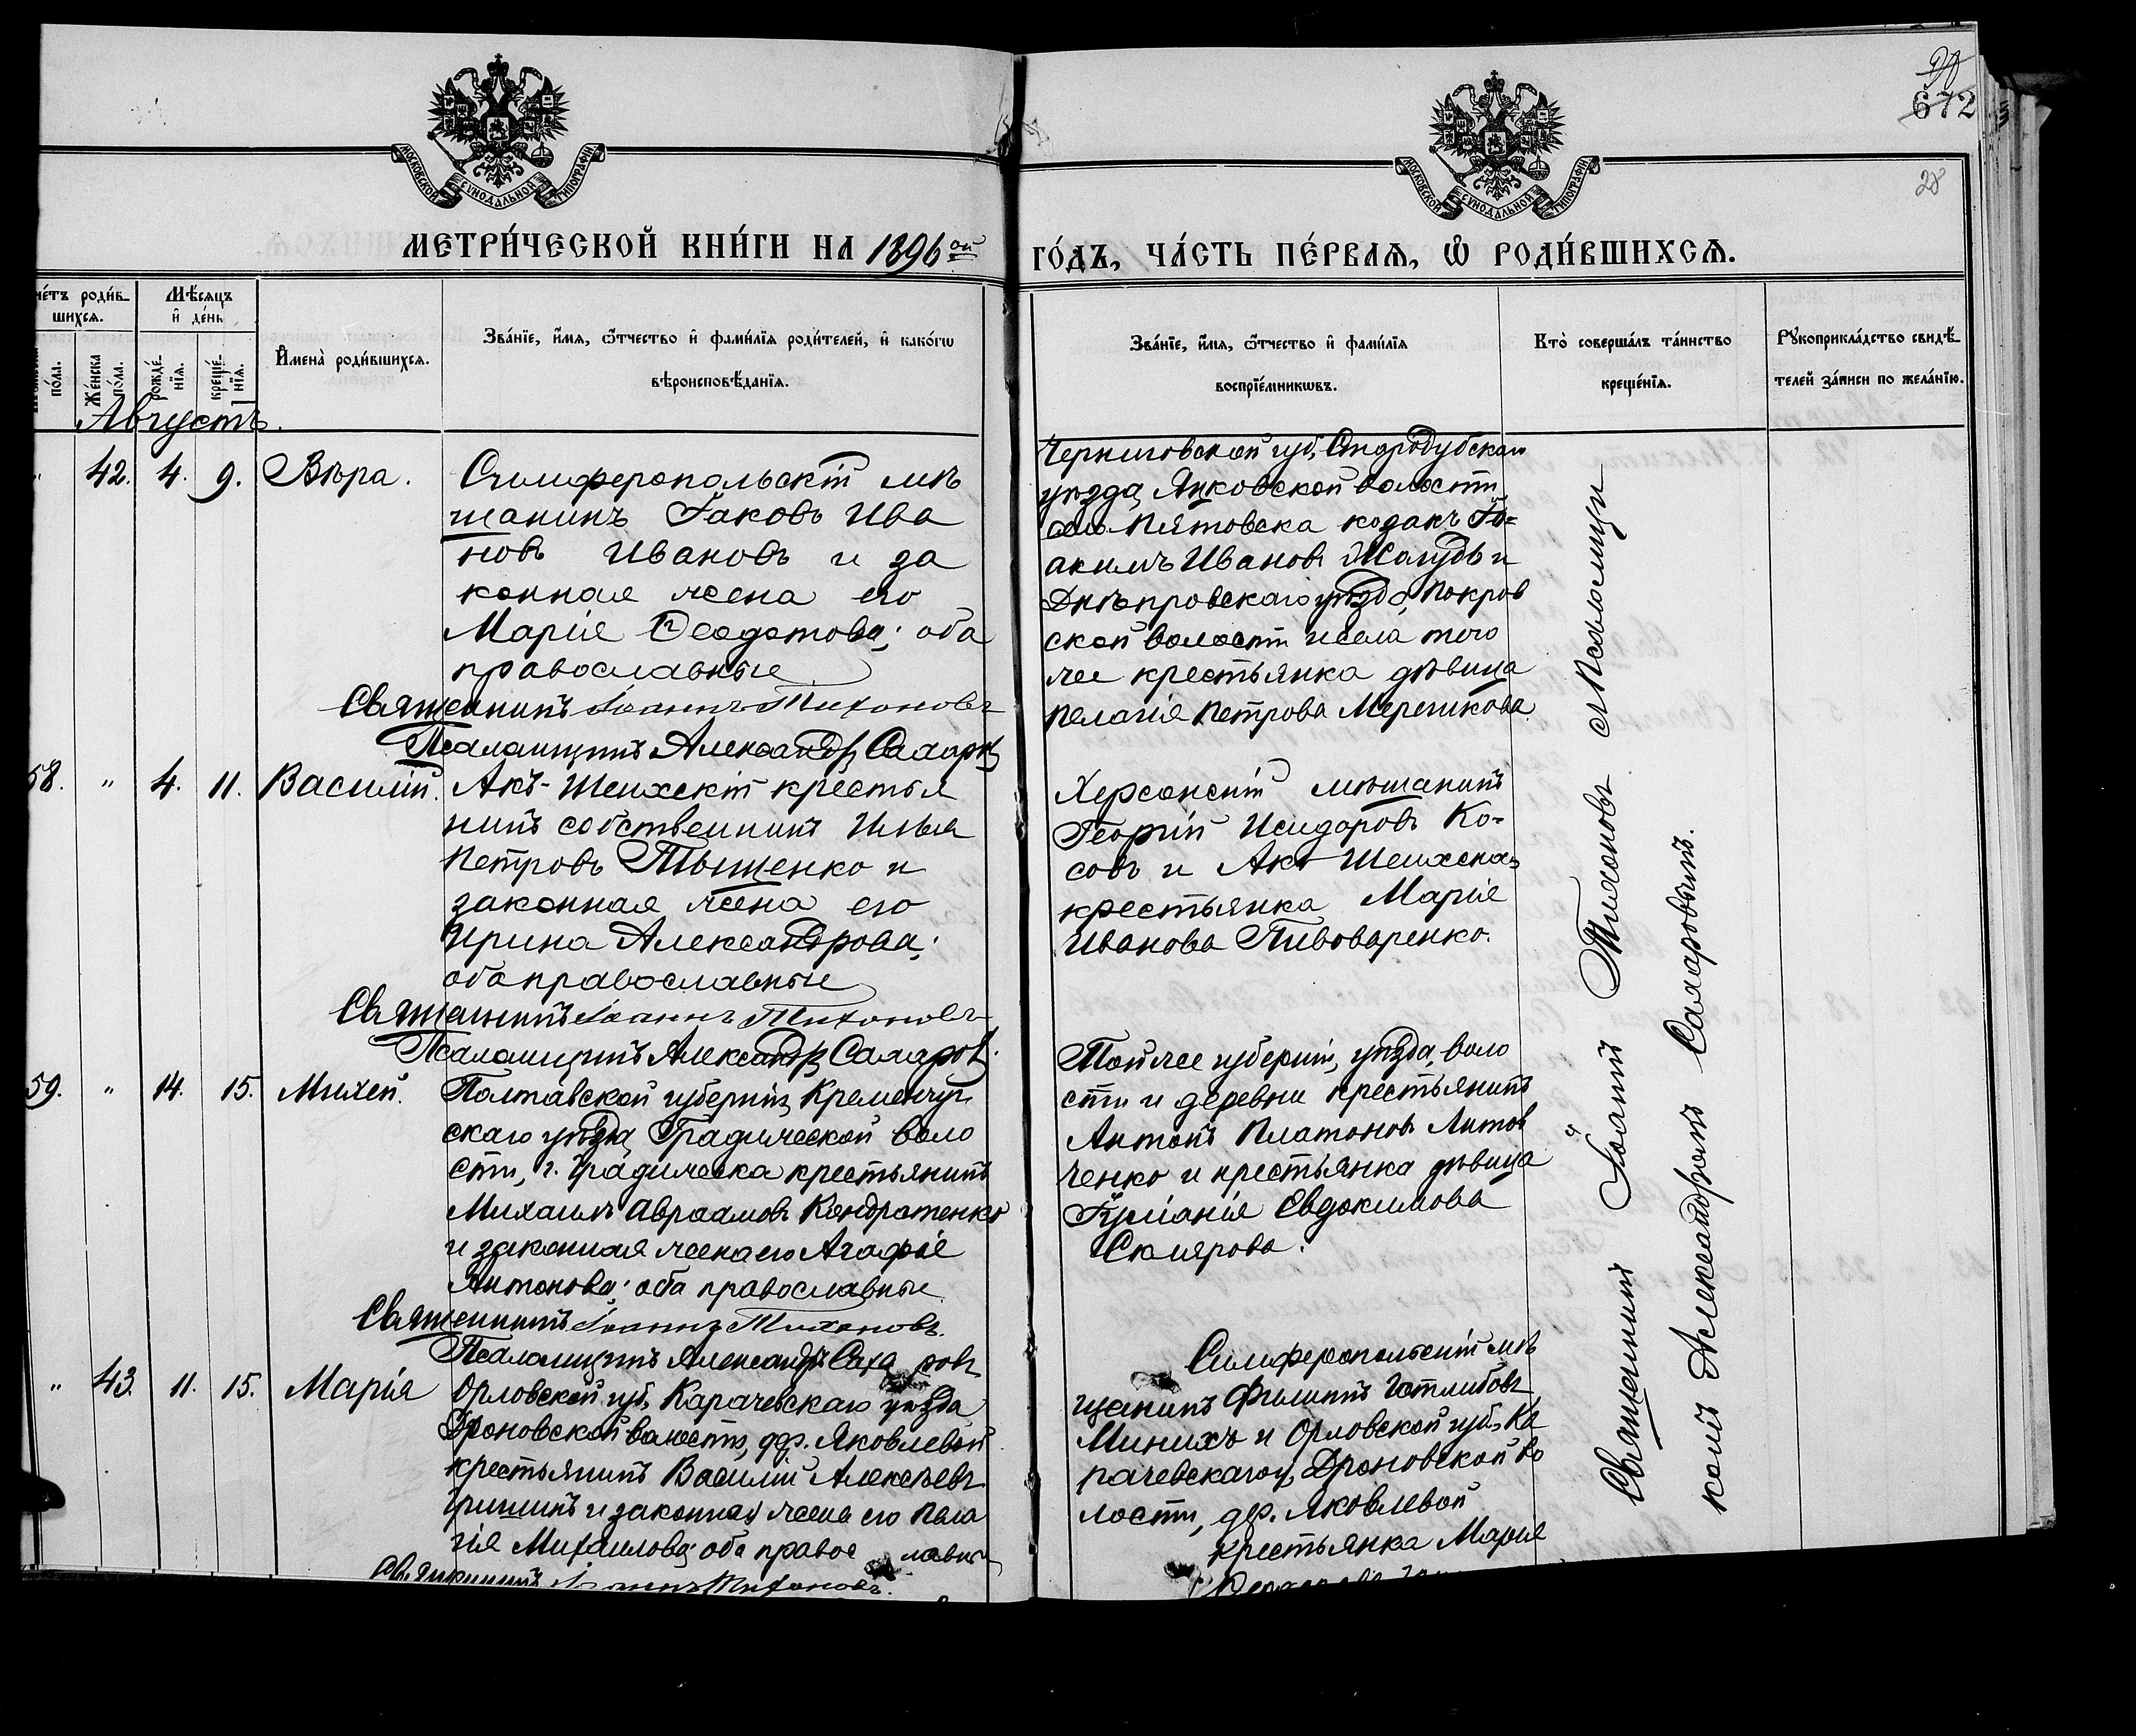 20
672
28
МОСКОВСКОЙ СѴНОДАЛЬНОЙ ТИПОГРАФІИ
МОСКОВСКОЙ СѴНОДАЛЬНОЙ ТИПОГРАФІИ
МЕТРИ́ЧЕСКОЙ КНИ́ГИ НА 1896ой
ГО́ДЪ, ЧА́СТЬ ПЕ́РВАѦ, Ѡ҆ РОДИ́ВШИХСѦ.
че́тъ роди́в-
шихсѧ.
по́ла.
Же́нска
по́ла.
Мѣ́сяцъ
и҆ де́нь
рожде́-
нїѧ.
креще́-
нїѧ.
И҆мена̀ роди́вшихсѧ.
Зва́нїе, и҆́мѧ, ѻ҆́тчество и҆ фами́лїѧ роди́телей, и҆ како́гѡ
вѣроисповѣ́данїѧ.
Зва́нїе, и҆́мѧ, ѻ҆́тчество и҆ фами́лїѧ
воспрїе́мникѡвъ.
Кто̀ соверша́лъ та́инство
креще́нїѧ.
Рꙋкоприкла́дство свидѣ́-
телей за́писи по жела́нїю.
Августъ.
" 42. 4. 9. Вѣра.
Симферопольскій мѣ
щанинъ Іаковъ Ива
новъ Ивановъ и за
конная жена его
Марія Ѳеодотова; оба
православные
Священникъ Іоаннъ Тихоновъ
Псаломщикъ Александръ Самаров
Черниговской губ, Стародубскаго
уѣзда, Янковской волости
села Пятовска козакъ Іо=
акимъ Ивановъ Жолудь и
Днѣпровскаго уѣзда, Покров
ской волости и села того
же крестьянка дѣвица
Пелагія Петрова Мерешкова.
58. " 4. 11. Василій.
Акъ-Шеихскій крестья
нинъ собственникъ Илья
Петровъ Тыщенко и
законная жена его
Ирина Александрова;
оба православные
Священникъ Іоаннъ Тихоновъ
Псаломщикъ Александръ Самаров.
Херсонскій мѣщанинъ
Георгій Исидоровъ Ко-
совъ и Акъ-Шеихская
крестьянка Марія
Иванова Пивоваренко.
59. " 14. 15. Михей.
Полтавской губерніи, Кременчуг
скаго уѣзда, Градижской воло
сти, г. Градижска крестьянинъ
Михаилъ Авраамовъ Кондратенко
и законная жена его Агафія
Антонова; оба православные
Священникъ Іоаннъ Тихоновъ.
Псаломщикъ Александръ Самаровъ
Той же губерніи, уѣзда, воло
сти и деревни крестьянинъ
Антонъ Платоновъ Антон
ченко и крестьянка дѣвица
Іуліанія Евдокимова
Склярова.
" 43. 11. 15. Марія
Орловской губ, Карачевскаго уѣзда
Дроновской волости, дер. Яковлевой
крестьянинъ Василій Алексѣевъ
Гришинъ и законная жена его Пела
гія Михаилова; оба православные
Священникъ Іоаннъ Тихоновъ.
Симферопольскій мѣ
щанинъ Филиппъ Готлибовъ
Минихъ и Орловской губ, Ка
рачевскаго у, Дроновской во
лости, дер. Яковлевой
крестьянка Марія
Священникъ Іоаннъ Тихоновъ съ Псаломщи
комъ Александромъ Самаровымъ.